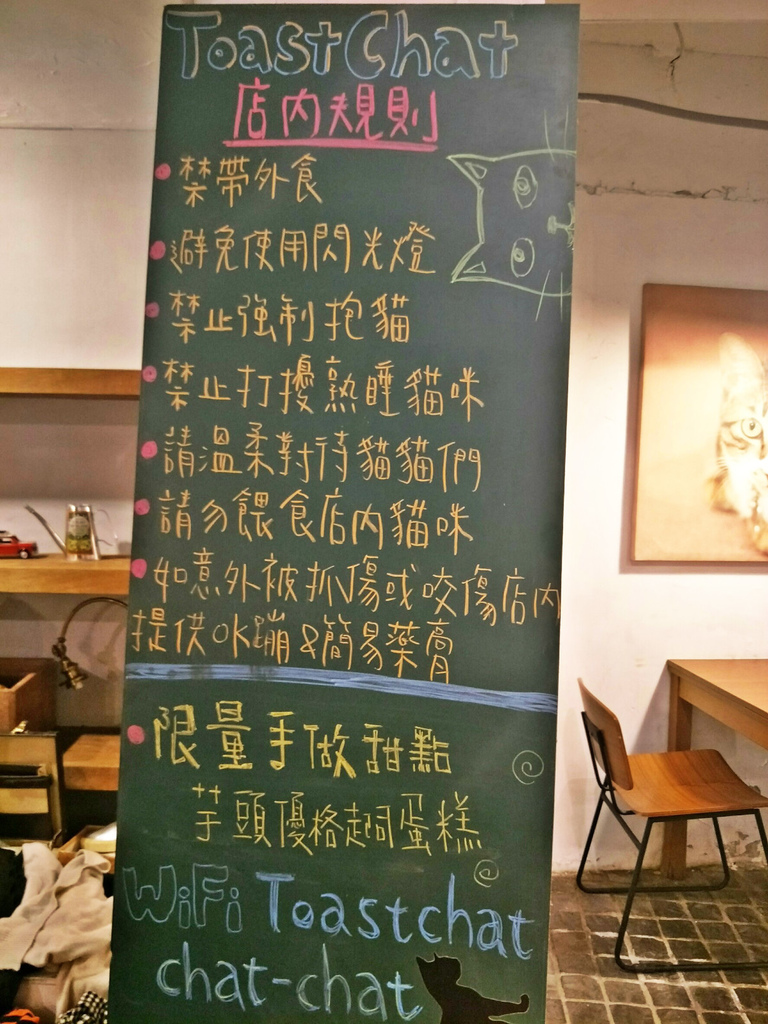 ToastChat
店內規則
禁帶外食
避免使用閃光燈
禁止強制抱貓
禁止打擾熟睡貓咪
請溫柔對待貓貓們
請勿餵食店內貓咪
如意外被抓傷或咬傷店內
提供OK蹦&簡易藥膏
限量手做甜點
芋頭優格起司蛋糕
WiFi Toastchat
chat-chat